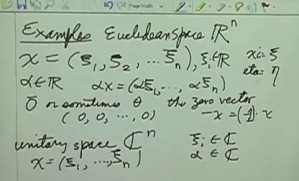 Examples Euclidean space ℝⁿ
x = (ξ₁, ξ₂ ... ξₙ), ξᵢ∈ℝ xi = ξ
eta = η
α∈ℝ αx = (αξ₁, ..., αξₙ)
0̄ or sometimes θ the zero vector
(0, 0, ..., 0) -x = (-1)·x
unitary space ℂⁿ ξᵢ ∈ ℂ
x = (ξ₁, ..., ξₙ) α ∈ ℂ